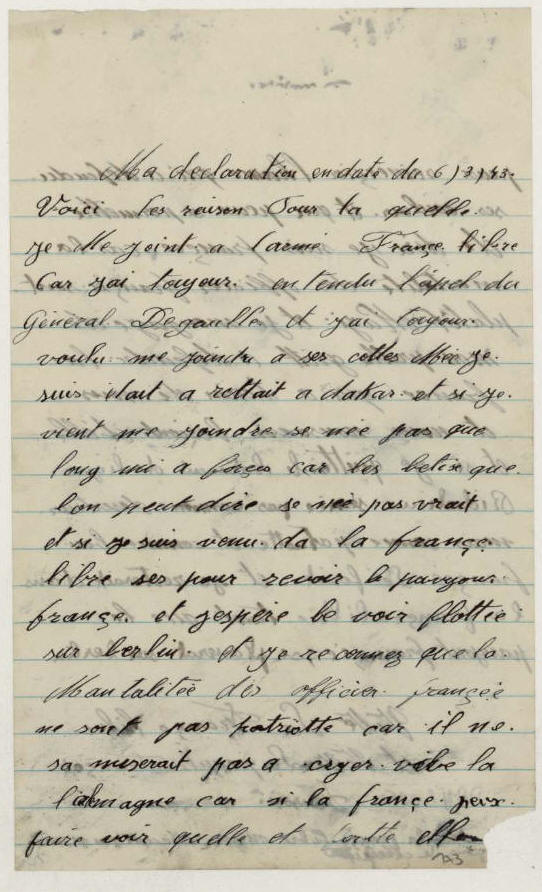 Ma declaration en date du 6)3)43.
Voici les raison Pour la quelle.
je Me joint a l'armé France libre
Car j'ai toujour. entendu l'apel du
Général Degaulle et j'ai toujour.
voulu me joindre a ses cottes Mée je.
suis était a rettait a dakar et si je.
vient me joindre se née pas que
long mi a forçes car les betise que.
lon peut dire se née pas vrait
et si je suis venu da la françe.
libre ses pour revoir le
françe. et jespère le voir flottée
sur berlin. et je reconnez que la.
Mantalitée des officier françée
ne sont pas patriotte car il ne.
sa miserait pas a cryer vive la
l'almagne car si la françe peux.
faire voir quelle et
A3